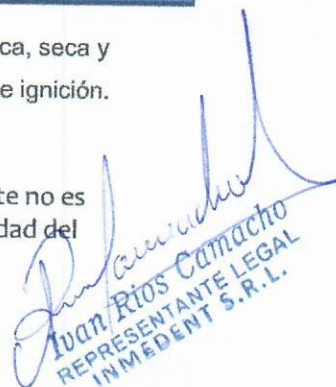 ca, seca y
e ignición.
te no es
dad del
Ivan Rios Camacho
REPRESENTANTE LEGAL
INMEDENT S.R.L.